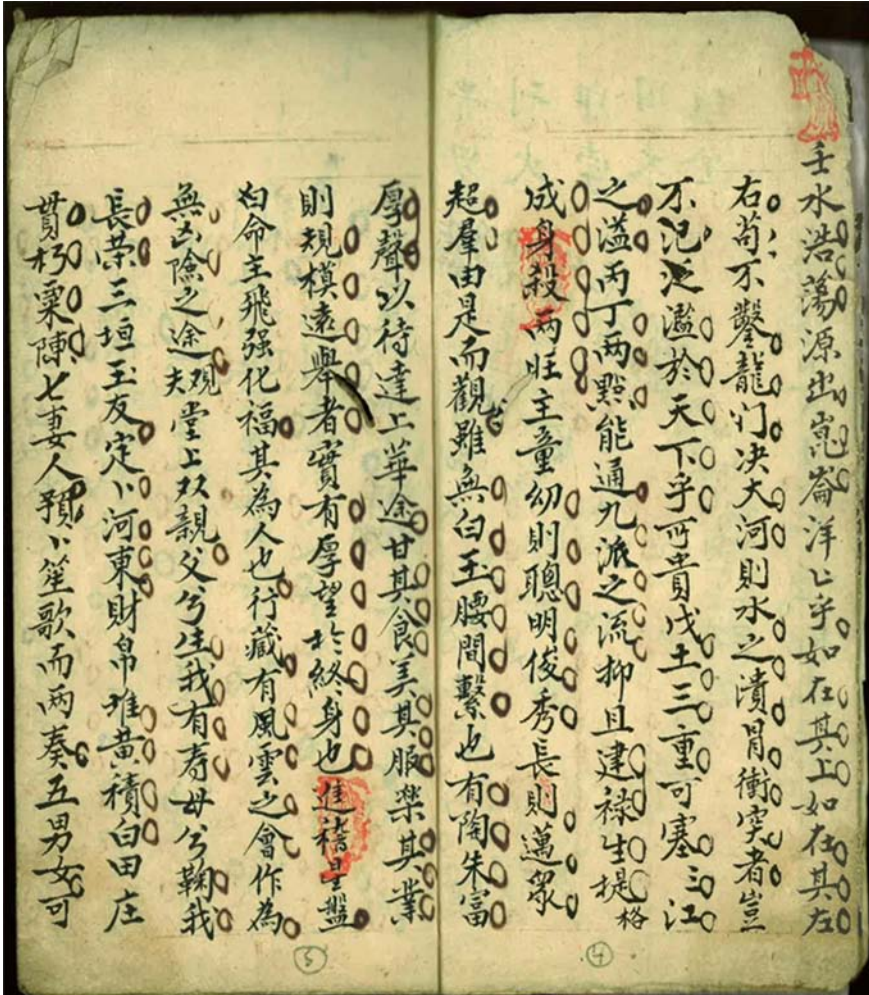 壬水浩蕩源出崑崙洋〻乎如在其上如在其左
右苟不鑿龍门决大河則水之潰冒衝突者豈
不氾泛濫於天下乎可貴戊土三重可塞三江
之溢丙丁两點能通九派之流抑且建禄生提格
成身殺两旺主童幼則聰明俊秀長則邁眾
超羣由是而觀雖無白玉腰間繫也有陶朱富
厚聲以待達上華途甘其食美其服樂其業
則規模遠舉者實有厚望於終身也進稽星盤
曰命主飛强化福其為人也行藏有風雲之會作為
無凶險之途观夫堂上双親父兮生我有寿母兮鞠我
長荣三垣玉友定〻河東財帛堆黄積白田庄
貫朽粟陳七妻人預〻笙歌而两奏五男女可
④
⑤